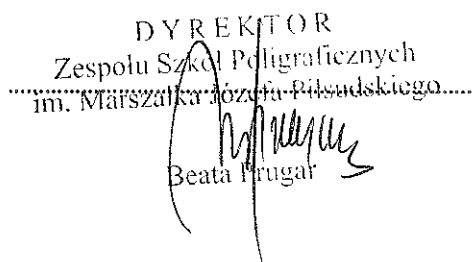 DYREKTOR
Zespołu Szkół Poligraficznych
im. Marszałka Józefa Piłsudskiego
Beata Frugar